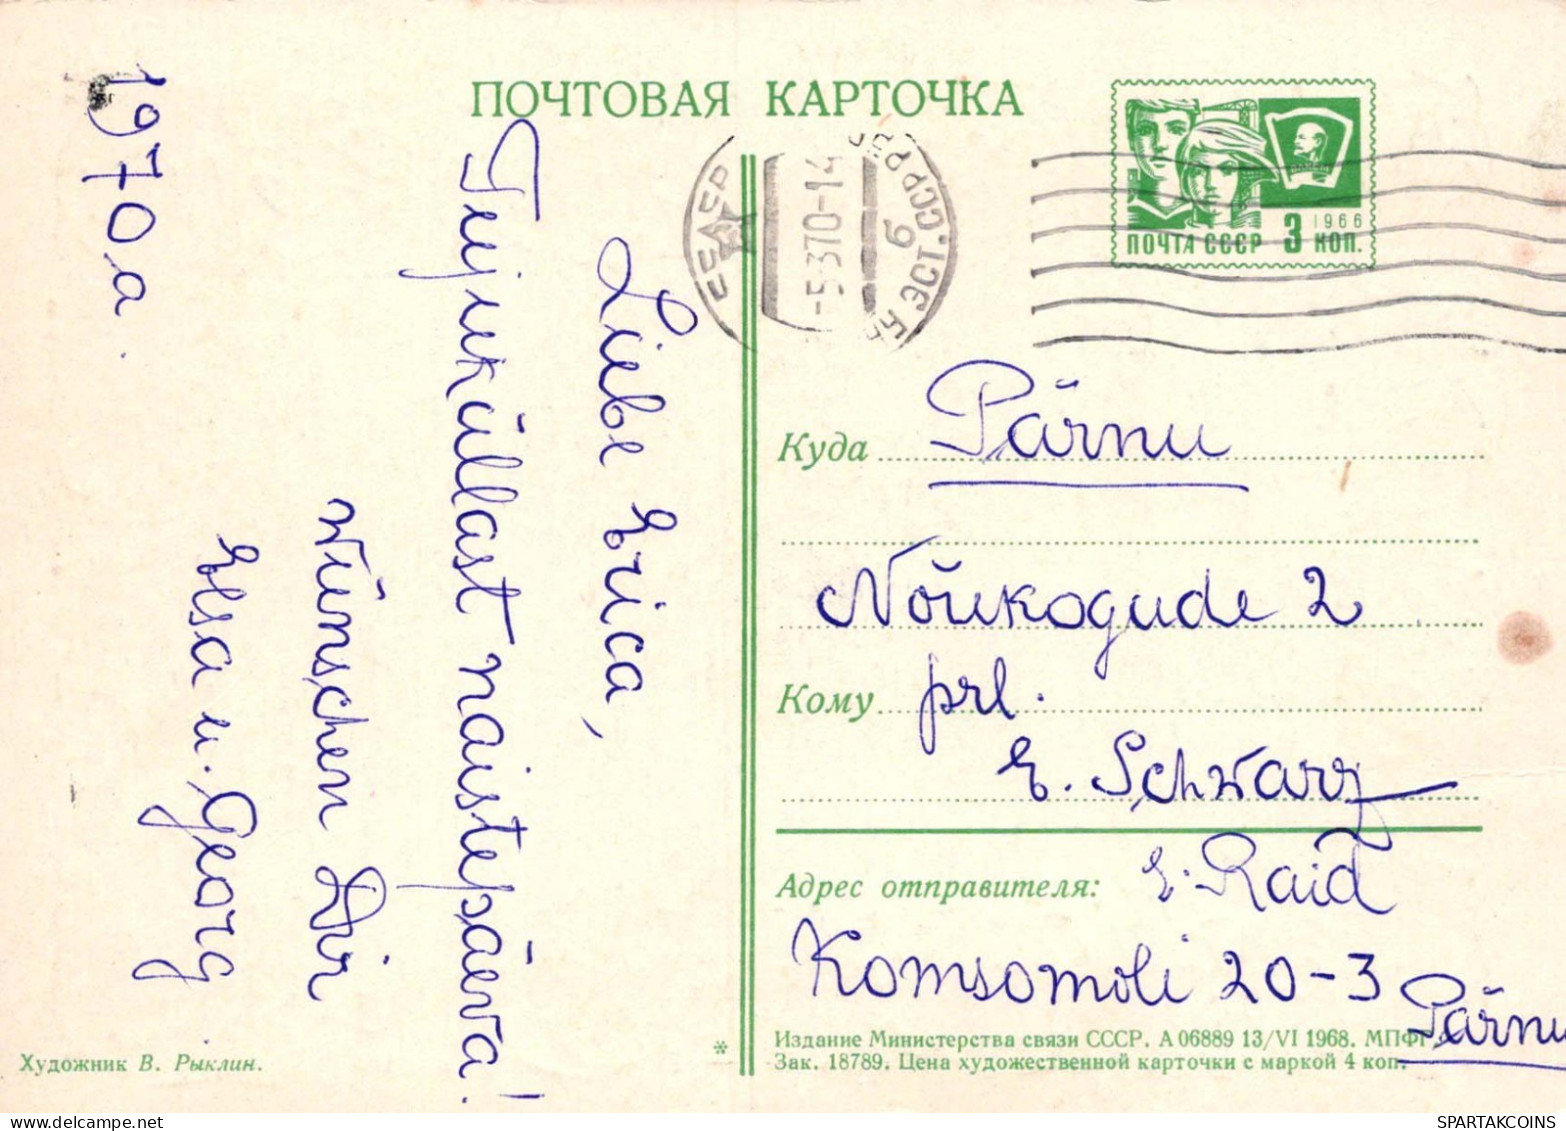 ПОЧТОВАЯ КАРТОЧКА
ПОЧТА СССР 3 КОП.
1966
-5370-14
ЭСТ. ССР
б
1970 a.
Liebe Erica,
Tujuküllast naistepäeva!
wünschen Dir
Elsa u. Georg.
Куда Pärnu
Nõukogude 2
Кому prl.
E. Schwarz
Адрес отправителя: E. Raid
Komsomoli 20-3
Pärnu
Издание Министерства связи СССР. А 06889 13/VI 1968. МПФГ
Зак. 18789. Цена художественной карточки с маркой 4 коп.
*
Художник В. Рыклин.
SPARTAKCOINS